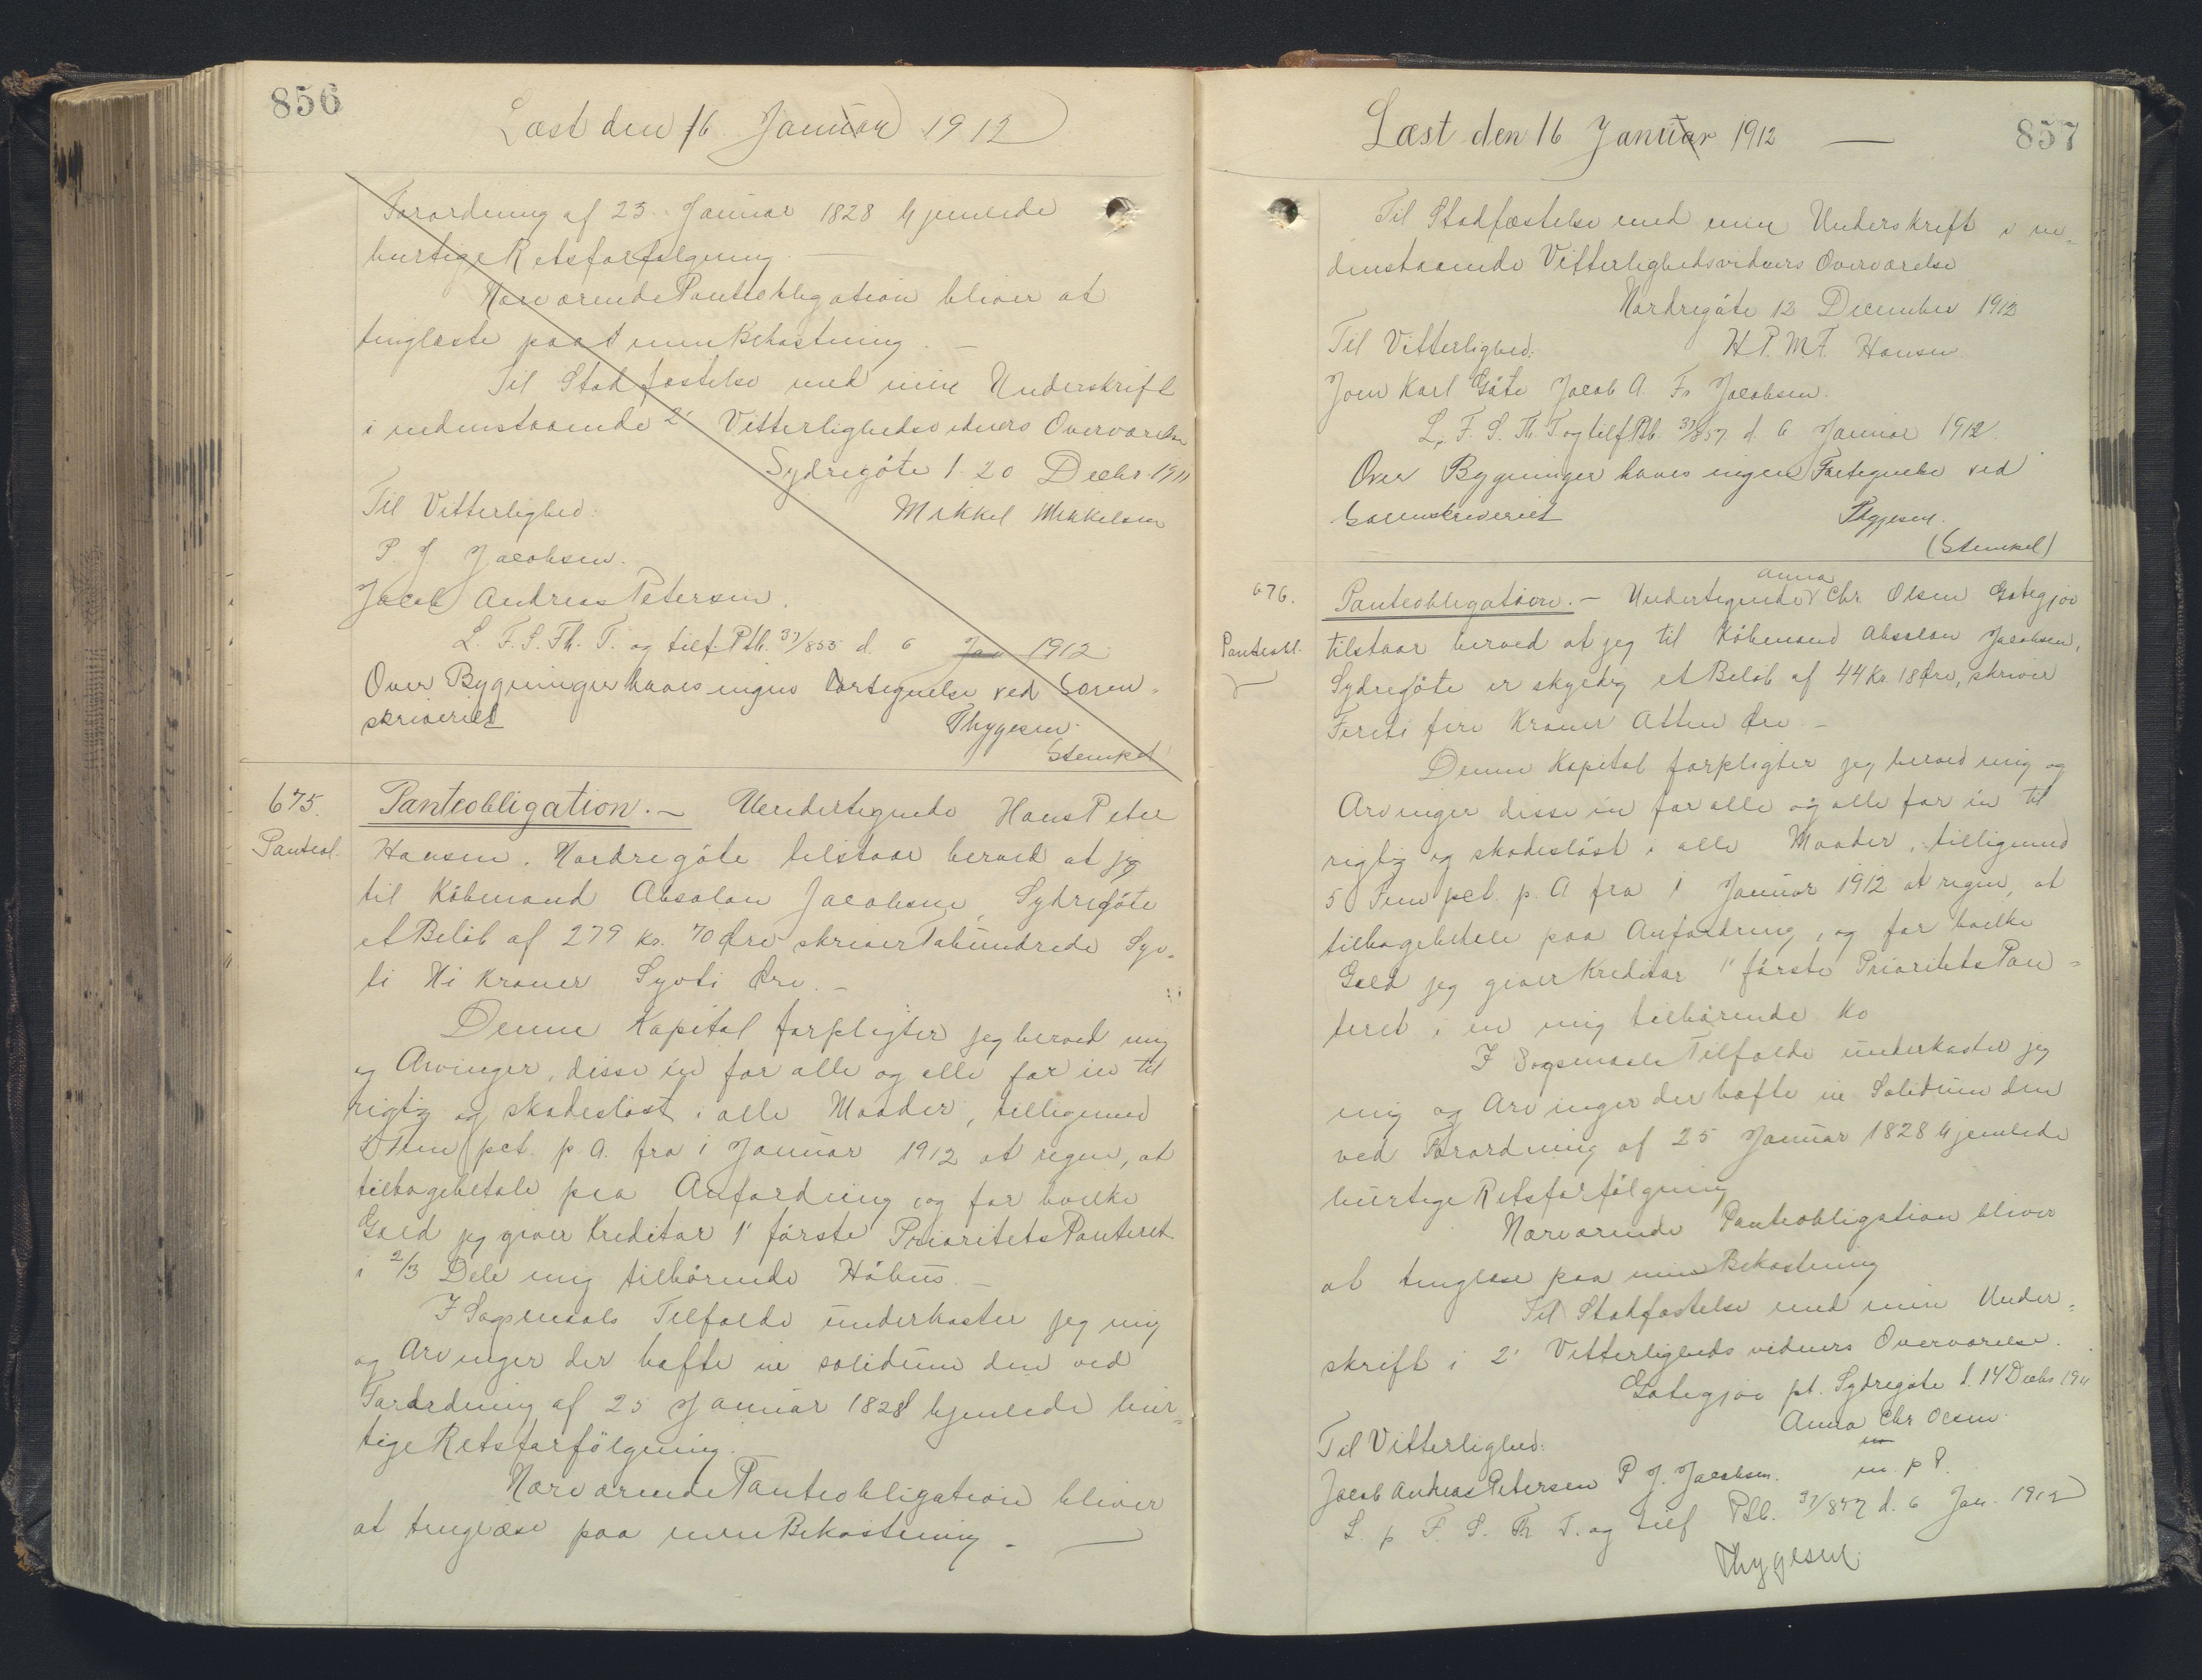 856
Læst den 16 Januar 1912
Forordning af 25 Januar 1828 hjemlede
hurtige Retsforfølgning.
Nærværende Panteobligation bliver at
tinglæste paa min Bekostning.
Til Stadfæstelse med min Underskrift
i nedenstaaende 2' Vitterlighedsvidners Overværelse
Sydregøte d. 20 Decbr. 1911
Til Vitterlighed: Mikkel Mikkelsen
P. J. Jacobsen.
Jacob Andreas Petersen.
L. F. S. Th. T. og tilf. Ptb. 37/855 d. 6 Jan 1912
Over Bygninger haves ingen Fortegnelse ved Soren-
skriveriet Thygesen.
Stempel
675. Panteobligation. – Undertegnede Hans Peter
Panteol. Hansen, Nordregøte tilstaar herved at jeg
til Købmand Absalon Jacobsen, Sydregøte
et Beløb af 279 Kr. 70 Øre skriver Tohundrede Syv-
ti Ni Kroner Syvti Øre. –
Denne Kapital forpligter jeg herved mig
og Arvinger, disse én for alle og alle for én til
rigtig og skadesløst i alle Maader, tilligemed
5 Fem pct. p. a. fra 1 Januar 1912 at regne, at
tilbagebetale paa Anfordring, og for hvilke
Gæld jeg giver Kreditor 1' første Prioritets Panteret
i 2/3 Dele mig tilhørende Høhus. –
I Søgsmaals Tilfælde underkaster jeg mig
og Arvinger der hæfte in solidum den ved
Forordning af 25 Januar 1828 hjemlede hur-
tige Retsforfølgning.
Nærværende Panteobligation bliver
at tinglæse paa min Bekostning. –
Læst den 16 Januar 1912 — 857
Til Stadfæstelse med min Underskrift i ne-
denstaaende Vitterlighedsvidners Overværelse
Nordregøte 12 December 1912
Til Vitterlighed: H. P. M. F. Hansen.
Joen Karl Gøte Jacob A. Fr. Jacobsen.
L. F. S. Th. T. og tilf. Ptb. 37/857 d. 6 Januar 1912.
Over Bygninger haves ingen Fortegnelse ved
Sorenskriveriet Thygesen.
(Stempel)
676. Panteobligation. – Undertegnede Anna Chr. Olsen Gøtegjov
Panteobl. tilstaar herved at jeg til Købmand Absalon Jacobsen,
Sydregøte er skyldig et Beløb af 44 Kr. 18 Øre, skriver
Firti fire Kroner Atten Øre –
Denne Kapital forpligter jeg herved mig og
Arvinger disse én for alle og alle for én til
rigtig og skadesløst i alle Maader, tilligemed
5 Fem pct. p. A fra 1 Januar 1912 at regne, at
tilbagebetale paa Anfordring, og for hvilke
Gæld jeg giver Kreditor 1' første Prioritets Pan-
teret i en mig tilhørende Ko
I Søgsmaals Tilfælde underkaster jeg
mig og Arvinger der hæfte in Solidum den
ved Forordning af 25 Januar 1828 hjemlede
hurtige Retsforfølgning
Nærværende Panteobligation bliver
at tinglæse paa min Bekostning
Til Stadfæstelse med min Under-
skrift i 2' Vitterligheds vidners Overværelse.
Gøtegjov pt. Sydregøte d. 14 Decbr 1911
Anna Chr Olsen.
Til Vitterlighed: m. p P.
Jacob Andreas Petersen P. J. Jacobsen.
L. p F. S. Th T. og tilf Ptb. 37/857 d. 6 Jan. 1912
Thygesen.